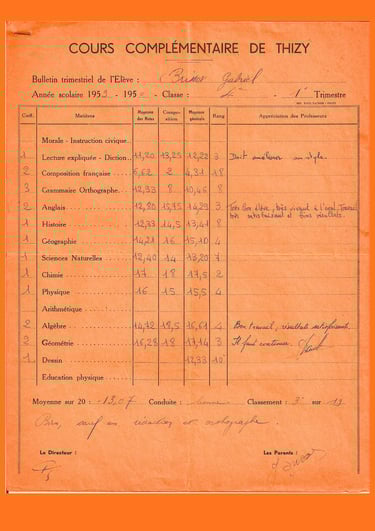 COURS COMPLÉMENTAIRE DE THIZY
Bulletin trimestriel de l'Elève : Gabriel
Année scolaire 195 - 195 - Classe : 4e - 1er Trimestre
Coef. Matières Moyenne des Notes Compo-sition Moyenne générale Rang Appréciation des Professeurs
Morale - Instruction civique
1 Lecture expliquée - Diction 11,20 13,25 12,22 3 Doit améliorer son style.
2 Composition française 6,62 2 4,31 18
3 Grammaire Orthographe 12,33 8 10,46 8
2 Anglais 12,80 15,75 14,29 3 Très bon élève, très vivant à l'oral. Travail
très satisfaisant et bons résultats.
1 Histoire 12,33 14,5 13,41 8
1 Géographie 14,21 16 15,10 4
1 Sciences Naturelles 12,40 14 13,20 7
1 Chimie 17 18 17,5 2
1 Physique 16 15 15,5 4
Arithmétique
2 Algèbre 14,72 18,5 16,61 4 Bon travail, résultats satisfaisants.
3 Géométrie 16,28 18 17,14 3 Il faut continuer.
1 Dessin 12,33 10
Education physique
Moyenne sur 20 : 13,07 Conduite : Classement : 3e sur 19
Bien, sauf en rédaction et orthographe.
Le Directeur : Les Parents :